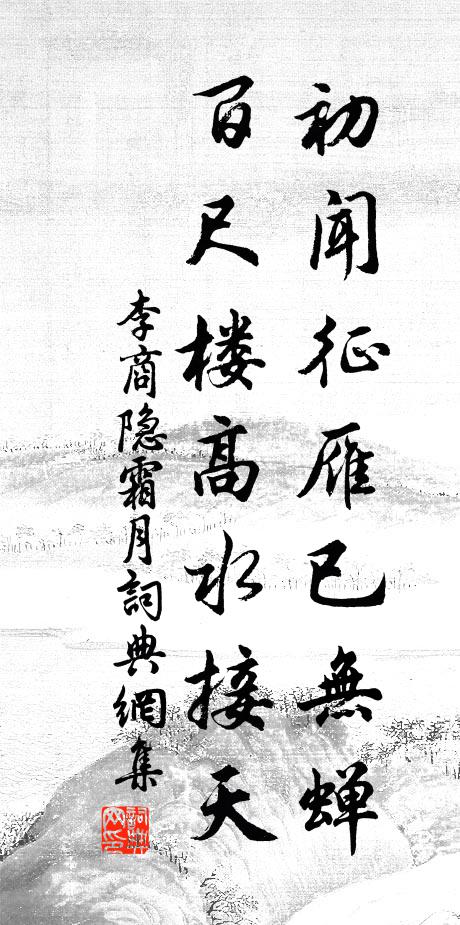 初闻征雁已無蝉
百尺楼高水接天
李商隐霜月詞典網集
詞典网印